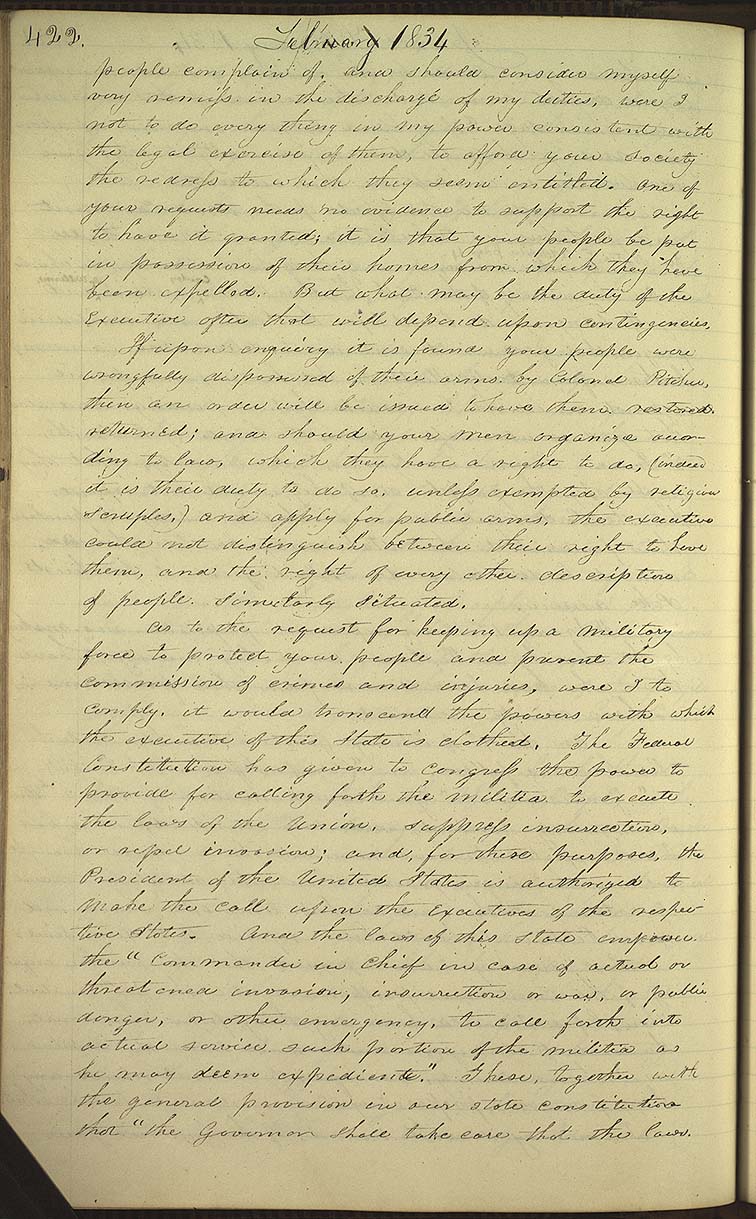 422. February 1834
people complain of, and should consider myself
very remiss in the discharge of my duties, were I
not to do every thing in my power consistent with
the legal exercise of them, to afford your society
the redress to which they seem entitled. One of
your requests needs no evidence to support the right
to have it granted; it is that your people be put
in possession of their homes from which they have
been expelled. But what may be the duty of the
Executive after that will depend upon contingencies.
If upon enquiry it is found your people were
wrongfully dispossessed of their arms by Colonel Pitcher,
then an order will be issued to have them restored.
returned; and should your men organize accor-
ding to law, which they have a right to do, (indeed
it is their duty to do so, unless exempted by religious
scruples,) and apply for public arms, the executive
could not distinguish between their right to have
them, and the right of every other description
of people similarly situated.
as to the request for keeping up a military
force to protect your people and prevent the
commission of crimes and injuries, were I to
comply, it would transcend the powers with which
the executive of this State is clothed. The Federal
Constitution has given to Congress the power to
provide for calling forth the militia to execute
the laws of the Union, suppress insurrection,
or repel invasion; and, for these purposes, the
President of the United States is authorized to
make the call upon the executives of the respec-
tive States. And the laws of this state empower
the "Commander in Chief in case of actual or
threatened invasion, insurrection or war, or public
danger, or other emergency, to call forth into
actual service such portion of the militia as
he may deem expedient." These, together with
the general provision in our state constitution
that "the Governor shall take care that the laws